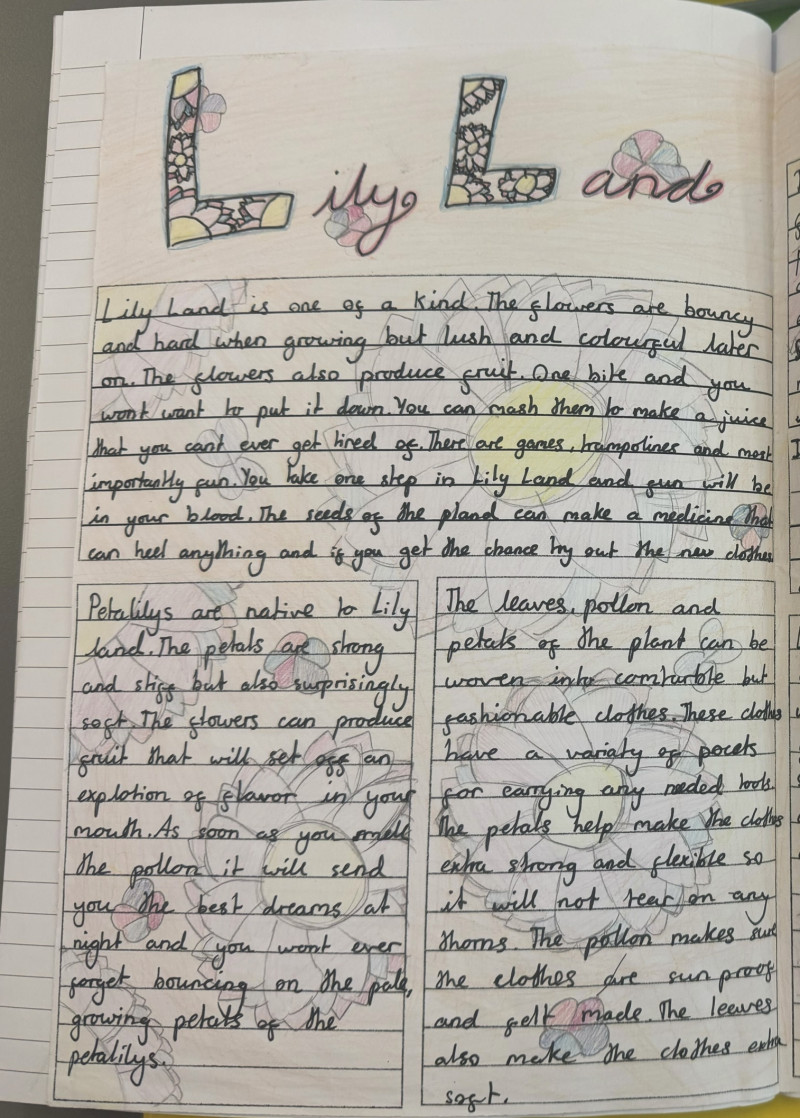 Lily Land
Lily Land is one of a kind. The flowers are bouncy
and hard when growing but lush and colourful later
on. The flowers also produce fruit. One bite and you
wont want to put it down. You can mash them to make a juice
that you cant ever get tired of. There are games, trampolines and most
importantly fun. You take one step in Lily Land and fun will be
in your blood. The seeds of the pland can make a medicine that
can heel anything and if you get the chance try out the new clothes
Petalilys are native to Lily
land. The petals are strong
and stiff but also surprisingly
soft. The flowers can produce
fruit that will set off an
explotion of flavor in your
mouth. As soon as you smell
the pollon it will send
you the best dreams at
night and you wont ever
forget bouncing on the pale,
growing petals of the
petalilys.
The leaves, pollon and
petals of the plant can be
woven into comfurtble but
fashionable clothes. These clothes
have a variaty of pocets
for carrying any needed tools.
The petals help make the clothes
extra strong and flexible so
it will not tear on any
thorns. The pollon makes sure
the clothes are sun proof
and felt made. The leeves
also make the clothes extra
soft.